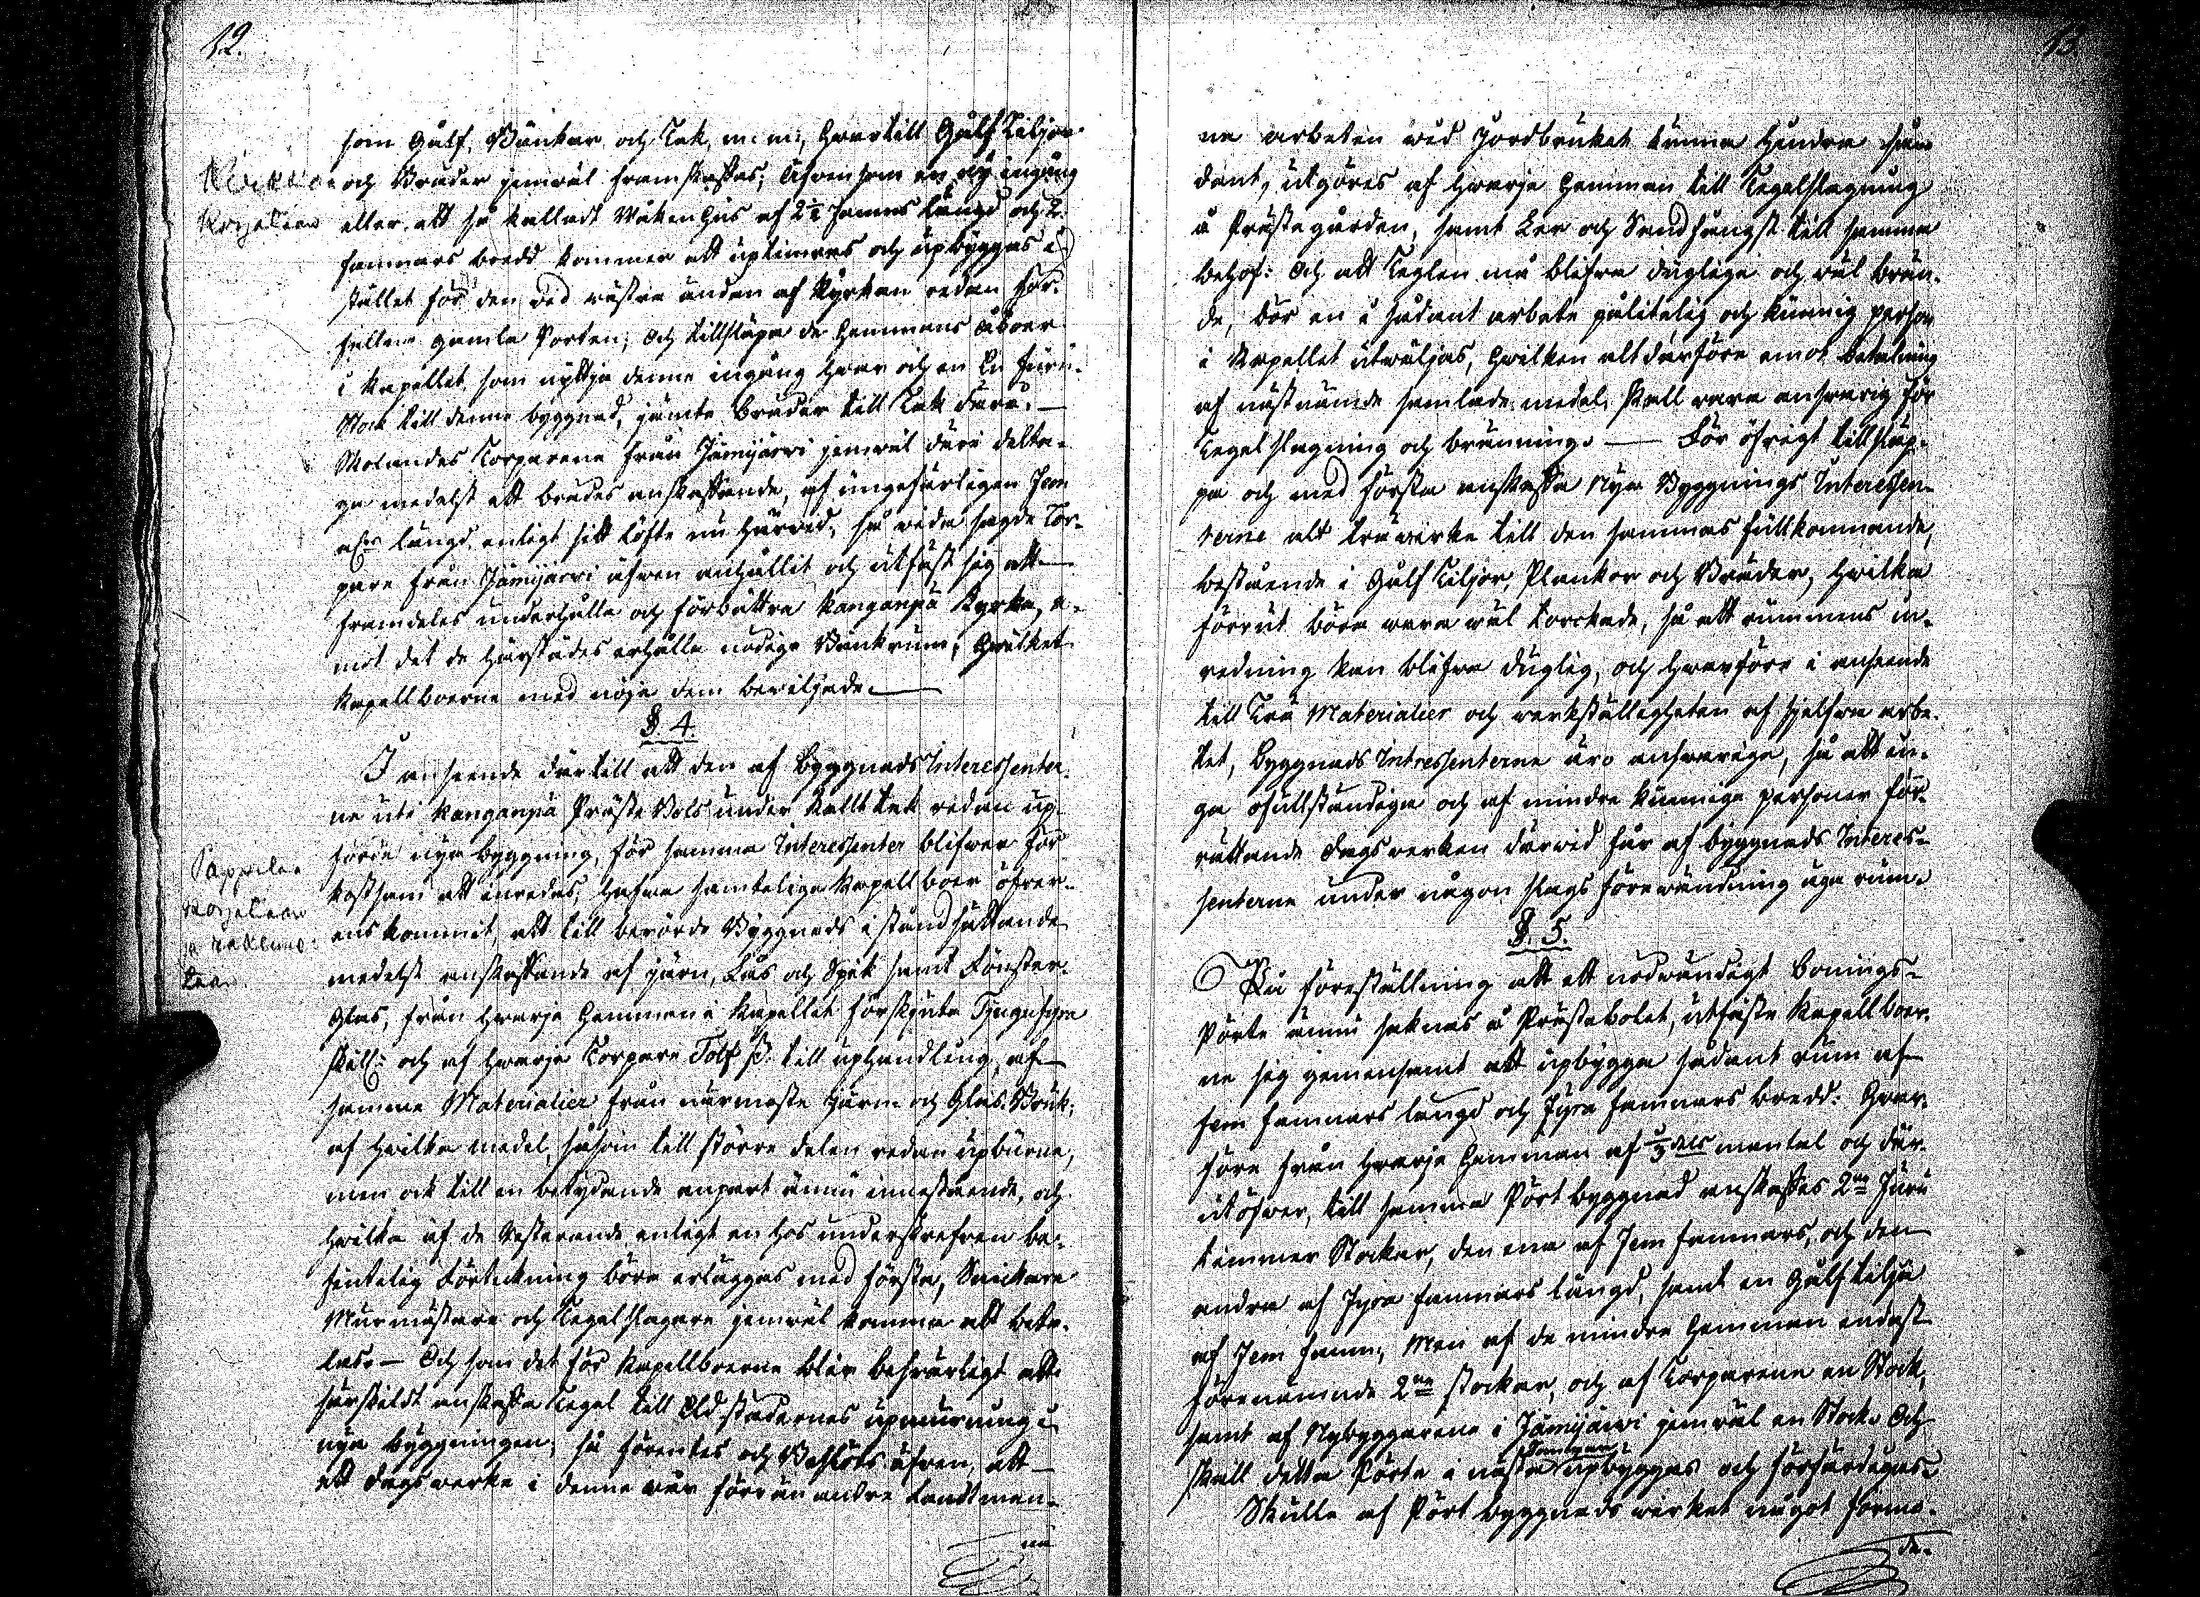 12.
som Gålf, Bänkar och Tak, m: m:, hwartill Gålf Tiljor
och Bräder jemwäl framskaffas; äfvensom en ny ingång
eller ett så kalladt Wåkenhus af 2½ famns längd och 2
famnars bredd kommer att uptimras och upbyggas i
stället för den wid wästra ändan af Kyrkan redan för-
fallna gamla Porten; och tillsläpa de Hemmans Åboer
i Kapellet som nyttja denna ingång hwar och en En furu-
Stock till denna byggnad, jämte bräder till Tak därå. —
Molandes Torparena från Jämijärwi jemwäl däri delta-
ga medelst ett brädes anskaffande, af ungefärligen fem
al:rs längd, enligt sitt löfte nu härwid; så wida sagde Tor-
pare från Jämijärwi äfwen anhållit och utfäst sig att
framdeles underhålla och förbättra Kanganpä Kyrka, e-
mot det de härstädes erhålla nödiga Bänkrum; hwilket
Kapellboerne med nöje dem bewiljade. —
Kirkkoa
Korjataan
§. 4.
I anseende därtill att den af Byggnads Interessenter-
ne uti Kanganpä Präste Bols under kallt tak redan up-
förde nya byggning, för samma Interessenter blifwer för
kostsam att inredas; hafwa samtelige Kapellboer öfver-
enskommit, att till berörde Byggnads i stånd sättande
medelst anskaffande af järn, Lås och Spik samt Fönster-
Glas, från hwarje Hemman i Kapellet förskjuta Tjugufyra
skill: och af hwarje Torpare Tolf ß. till uphandling af
samma Materialier från närmaste Järn- och Glas-Bruk;
af hwilka medel, såsom till större delen redan upburne,
men ock till en betydande anpart ännu innestående, och
hwilka af de Resterande enligt en hos underskrefven be-
fintelig Förteckning böra erläggas med första, Snickare
Murmästare och Tegelslagare jemwäl komma att beta-
las. — Och som det för Kapellboerne blir beswärligt att
särskildt anskaffa Tegel till Eldstädernes upmurning i
nya byggningen, så förentes och Beslöts äfven, att —
ett dagswerke i denna wår förrän andra Landtman-
na
Pappilaa
korjataan
ja rakenne-
taan.
13.
na arbeten wid Jordbruket kunna hindra så-
dant, utgöres af hwarje Hemman till Tegelslagning
å Prästegården, samt Ler och Sandfångst till samma
behof: Och att Teglen må blifwa duglige och wäl brän-
de, bör en i sådant arbete pålitelig och kunnig person
i Kapellet utwäljas, hwilken altdärföre emot betalning
af nästnämde samlade medel, skall wara answarig för
Tegel slagning och bränning. — För öfrigt tillsläp-
pa och med första anskaffa Nya Byggnings Interessen-
terne alt träwirke till den sammas fullkomnande,
bestående i Gålf Tiljor, Plankor och Bräder, hwilka
förrut böra wara wäl torckade, så att rummens in-
redning kan blifwa duglig, och hwarföre i anseende
till Trä Materialier och werkställigheten af sjelfwa arbe-
tet, Byggnads Intressenterne äro answarige, så att in-
ga ofullständiga och af mindre kunnige personer för-
rättande dagswerken därwid får af byggnads Interes-
senterne under någon slags förewändning äga rum.
§. 5.
På föreställning att ett nödwändigt bonings-
Pörte ännu saknas å Prästebolet, utfäste Kapellboer-
ne sig gemensamt att upbygga sådant rum af
fem famnars längd och fyra famnars bredd: hwar-
före från hwarje Hemman af ⅓ dels mantal och där-
utöfwer, till samma Pörtbyggnad anskaffes 2ne Furu
timmer Stockar, den ena af fem famnars, och den
andra af fyra famnars längd, samt en Gålftilja
af fem famn; Men af de mindre Hemman endast
förenämnde 2ne stockar, och af Torparena en Stock,
samt af Nybyggarena i Jämijärwi jemwäl en Stock. Och
skall detta Pörte i nästa upbyggas och förfärdigas.
Skulle af Pörtbyggnads wirket något förme-
da-